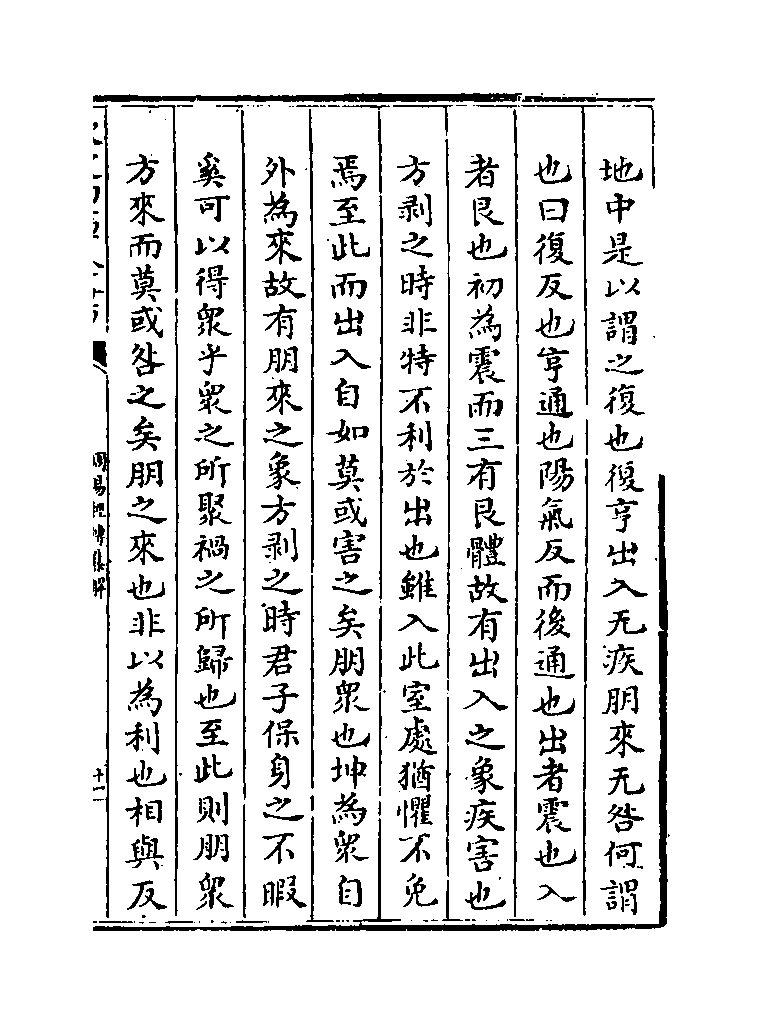 地中是以謂之復也復亨出入无疾朋來无咎何謂
也曰復反也亨通也陽氣反而後通也出者震也入
者艮也初為震而三有艮體故有出入之象疾害也
方剥之時非特不利於出也雖入此室處猶懼不免
焉至此而出入自如莫或害之矣朋衆也坤為衆自
外為來故有朋來之象方剥之時君子保身之不暇
奚可以得衆乎衆之所聚禍之所歸也至此則朋衆
方來而莫或咎之矣朋之來也非以為利也相與反
周易經傳集解
十一